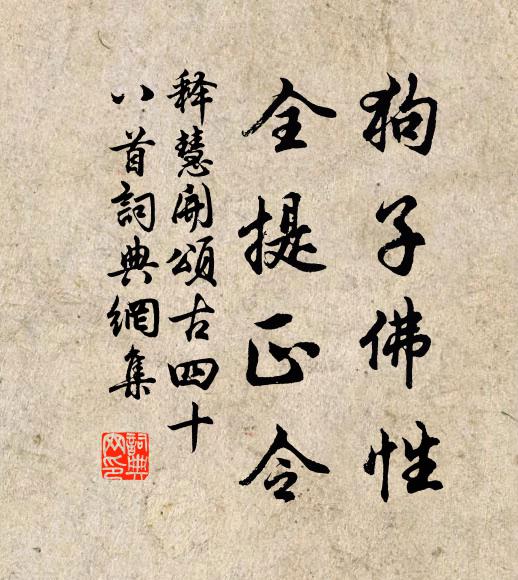 狗子佛性
全提正令
释慧開頌古四十
八首詞典網集
詞典
网印